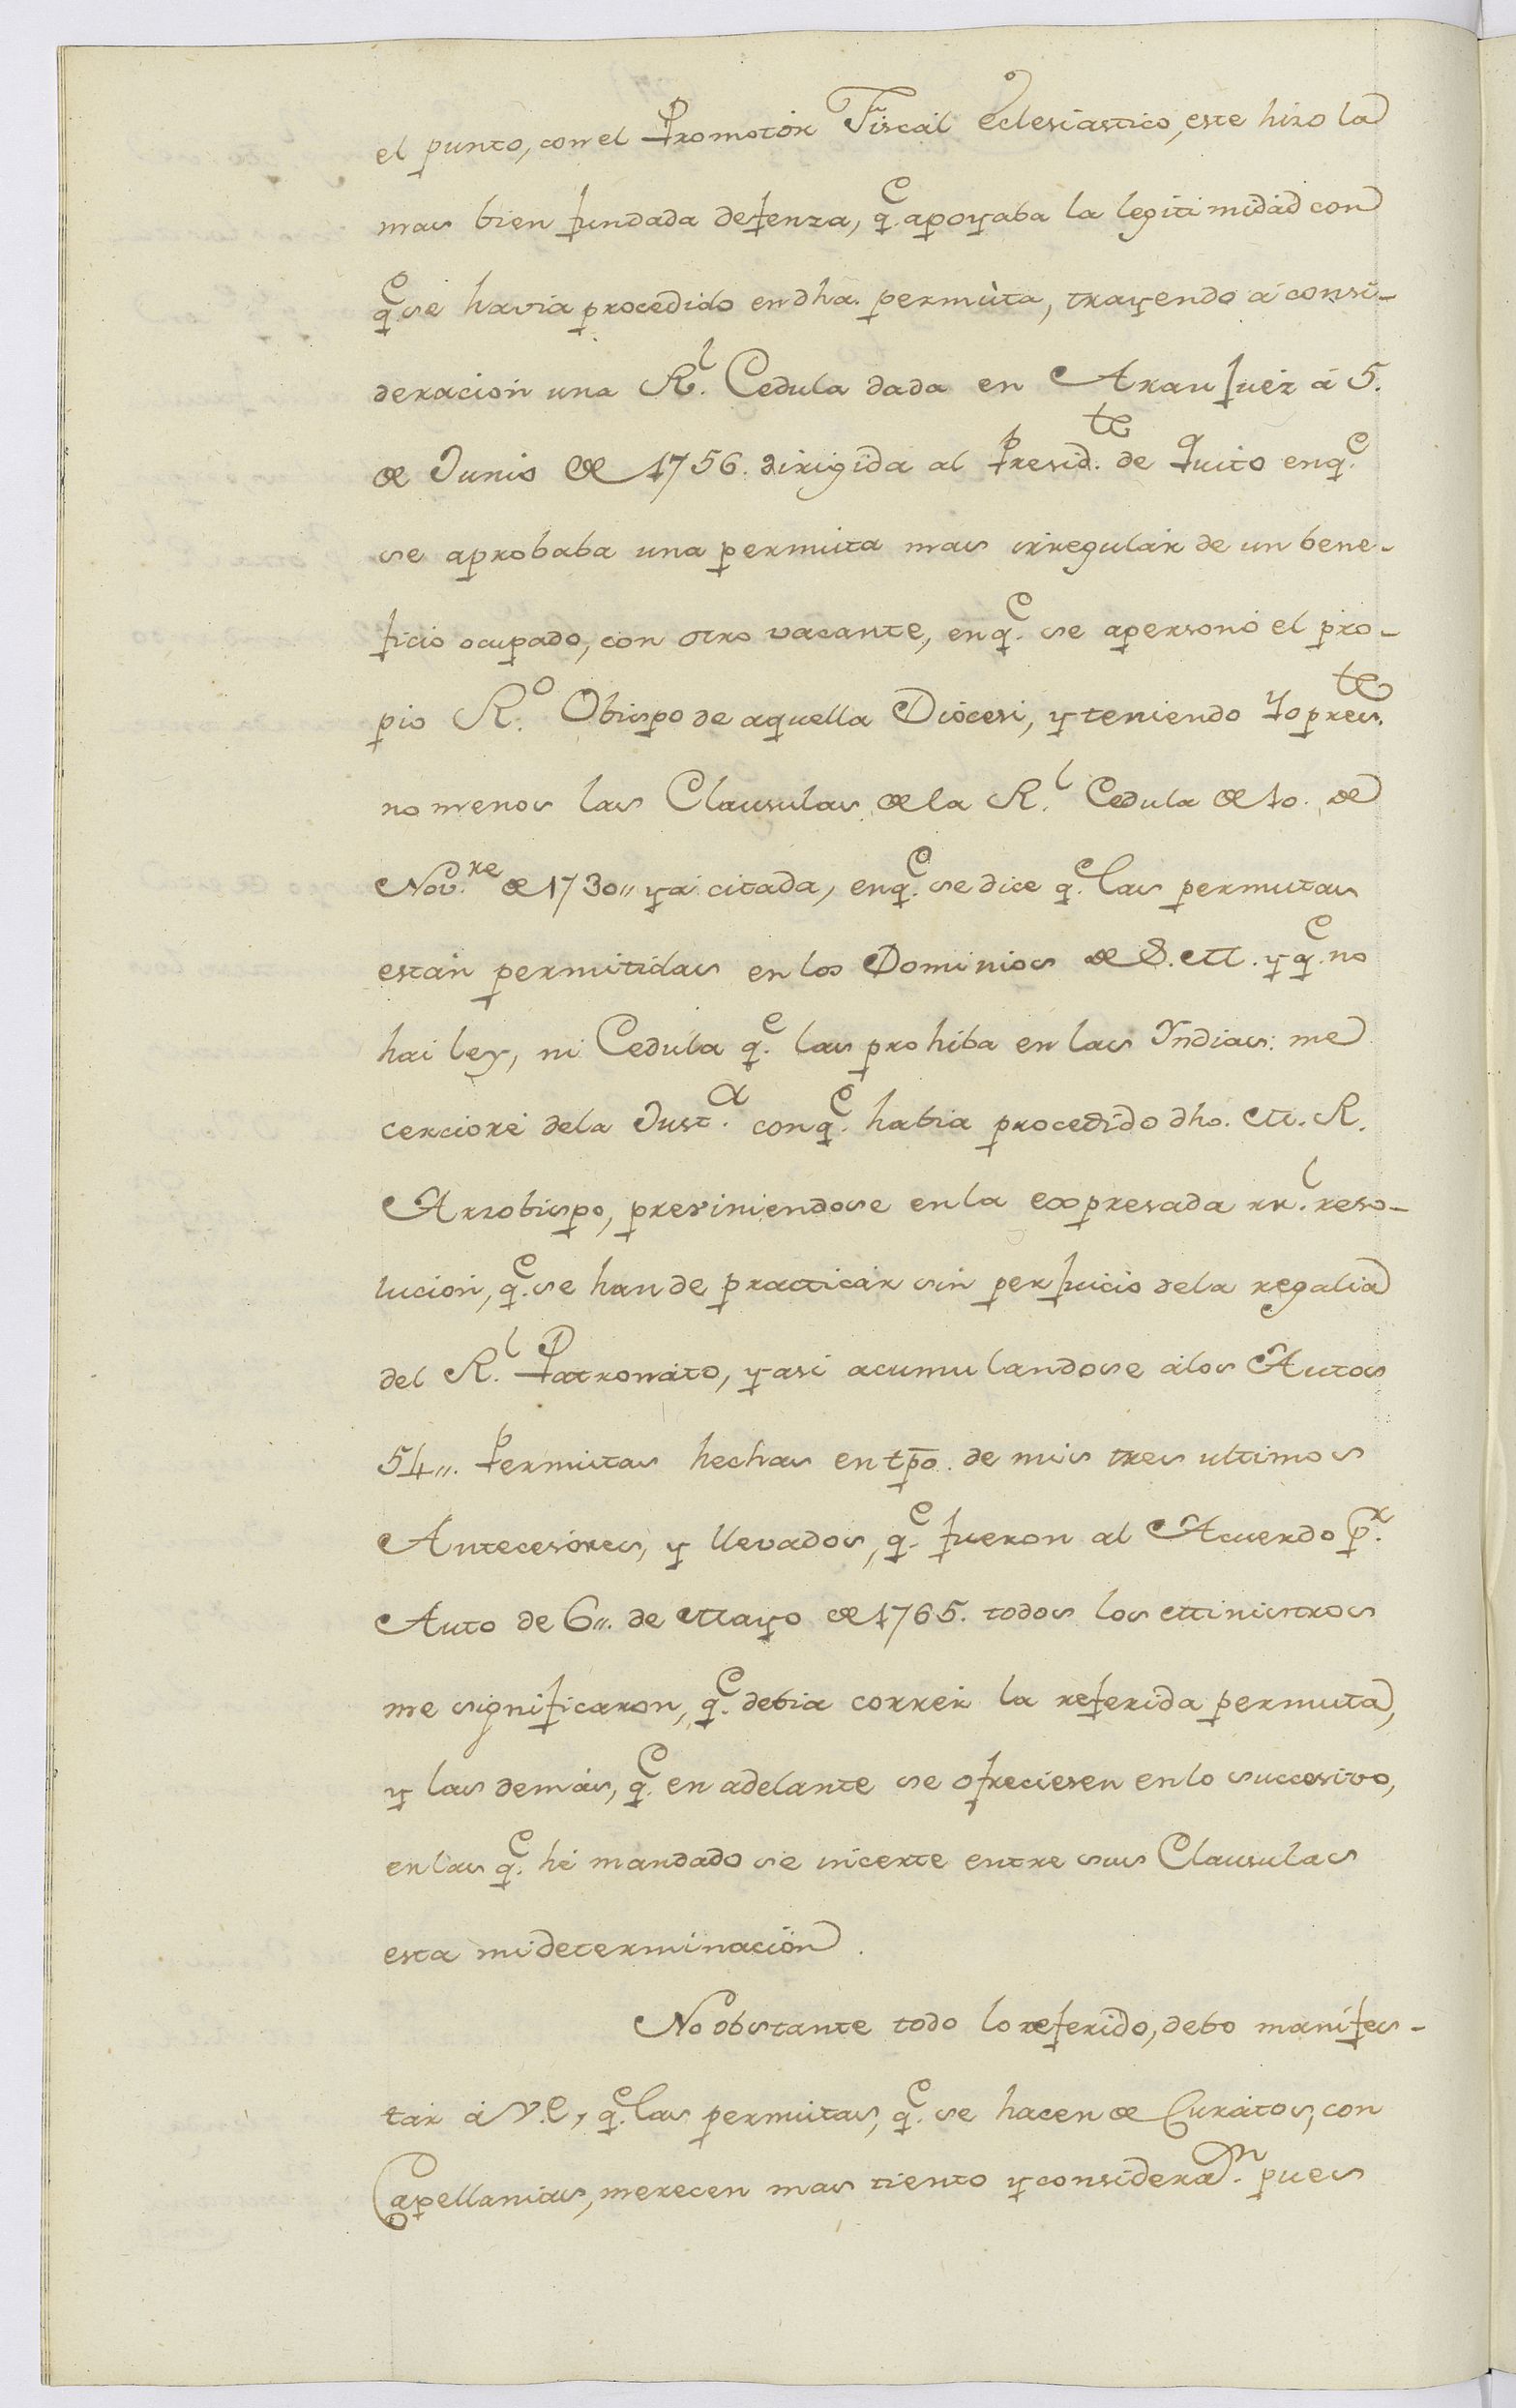 el punto, con el Promotor Fiscal Eclesiastico, este hizo la
mas bien fundada defenza, q.e apoyaba la legitimidad con
q.e se havia procedido en dha. permuta, trayendo á consi-
deracion una R.l Cedula dada en Aranjuez á 5.
de Junio de 1756. dirigida al Presid.te de Quito en q.e
se aprobaba una permuta mas irregular de un bene-
ficio ocupado, con otro vacante, en q.e se apersonó el pro-
pio R.o Obispo de aquella Diocesi, y teniendo Yo pres.te
no menos las Clausulas de la R.l Cedula de 10. de
Nov.re de 1730,, yá citada, en q.e se dice q.e las permutas
están permitidas en los Dominios de S. M. y q.e no
hai ley, ni Cedula q.e las prohiba en las Yndias: me
cercioré de la Just.a con q.e habia procedido dho. M. R.
Arzobispo, previniendose en la expresada rr.l reso-
lucion, q.e se han de practicar sin perjuicio de la regalia
del R.l Patronato, y asi acumulandose á los Autos
54,,. Permutas hechas en tpo. de mis tres ultimos
Antecesores, y llevados, q.e fueron al Acuerdo p.r
Auto de 6,,. de Mayo de 1765. todos los Ministros
me significaron, q.e debia correr la referida permuta,
y las demás, q.e en adelante se ofreciesen en lo succesivo,
en las q.e hé mandado se incerte entre sus Clausulas
esta mi determinación.
No obstante todo lo referido, debo manifes-
tar á V.E, q.e las permutas, q.e se hacen de Curatos, con
Capellanias, merecen mas tiento y considera.n pues